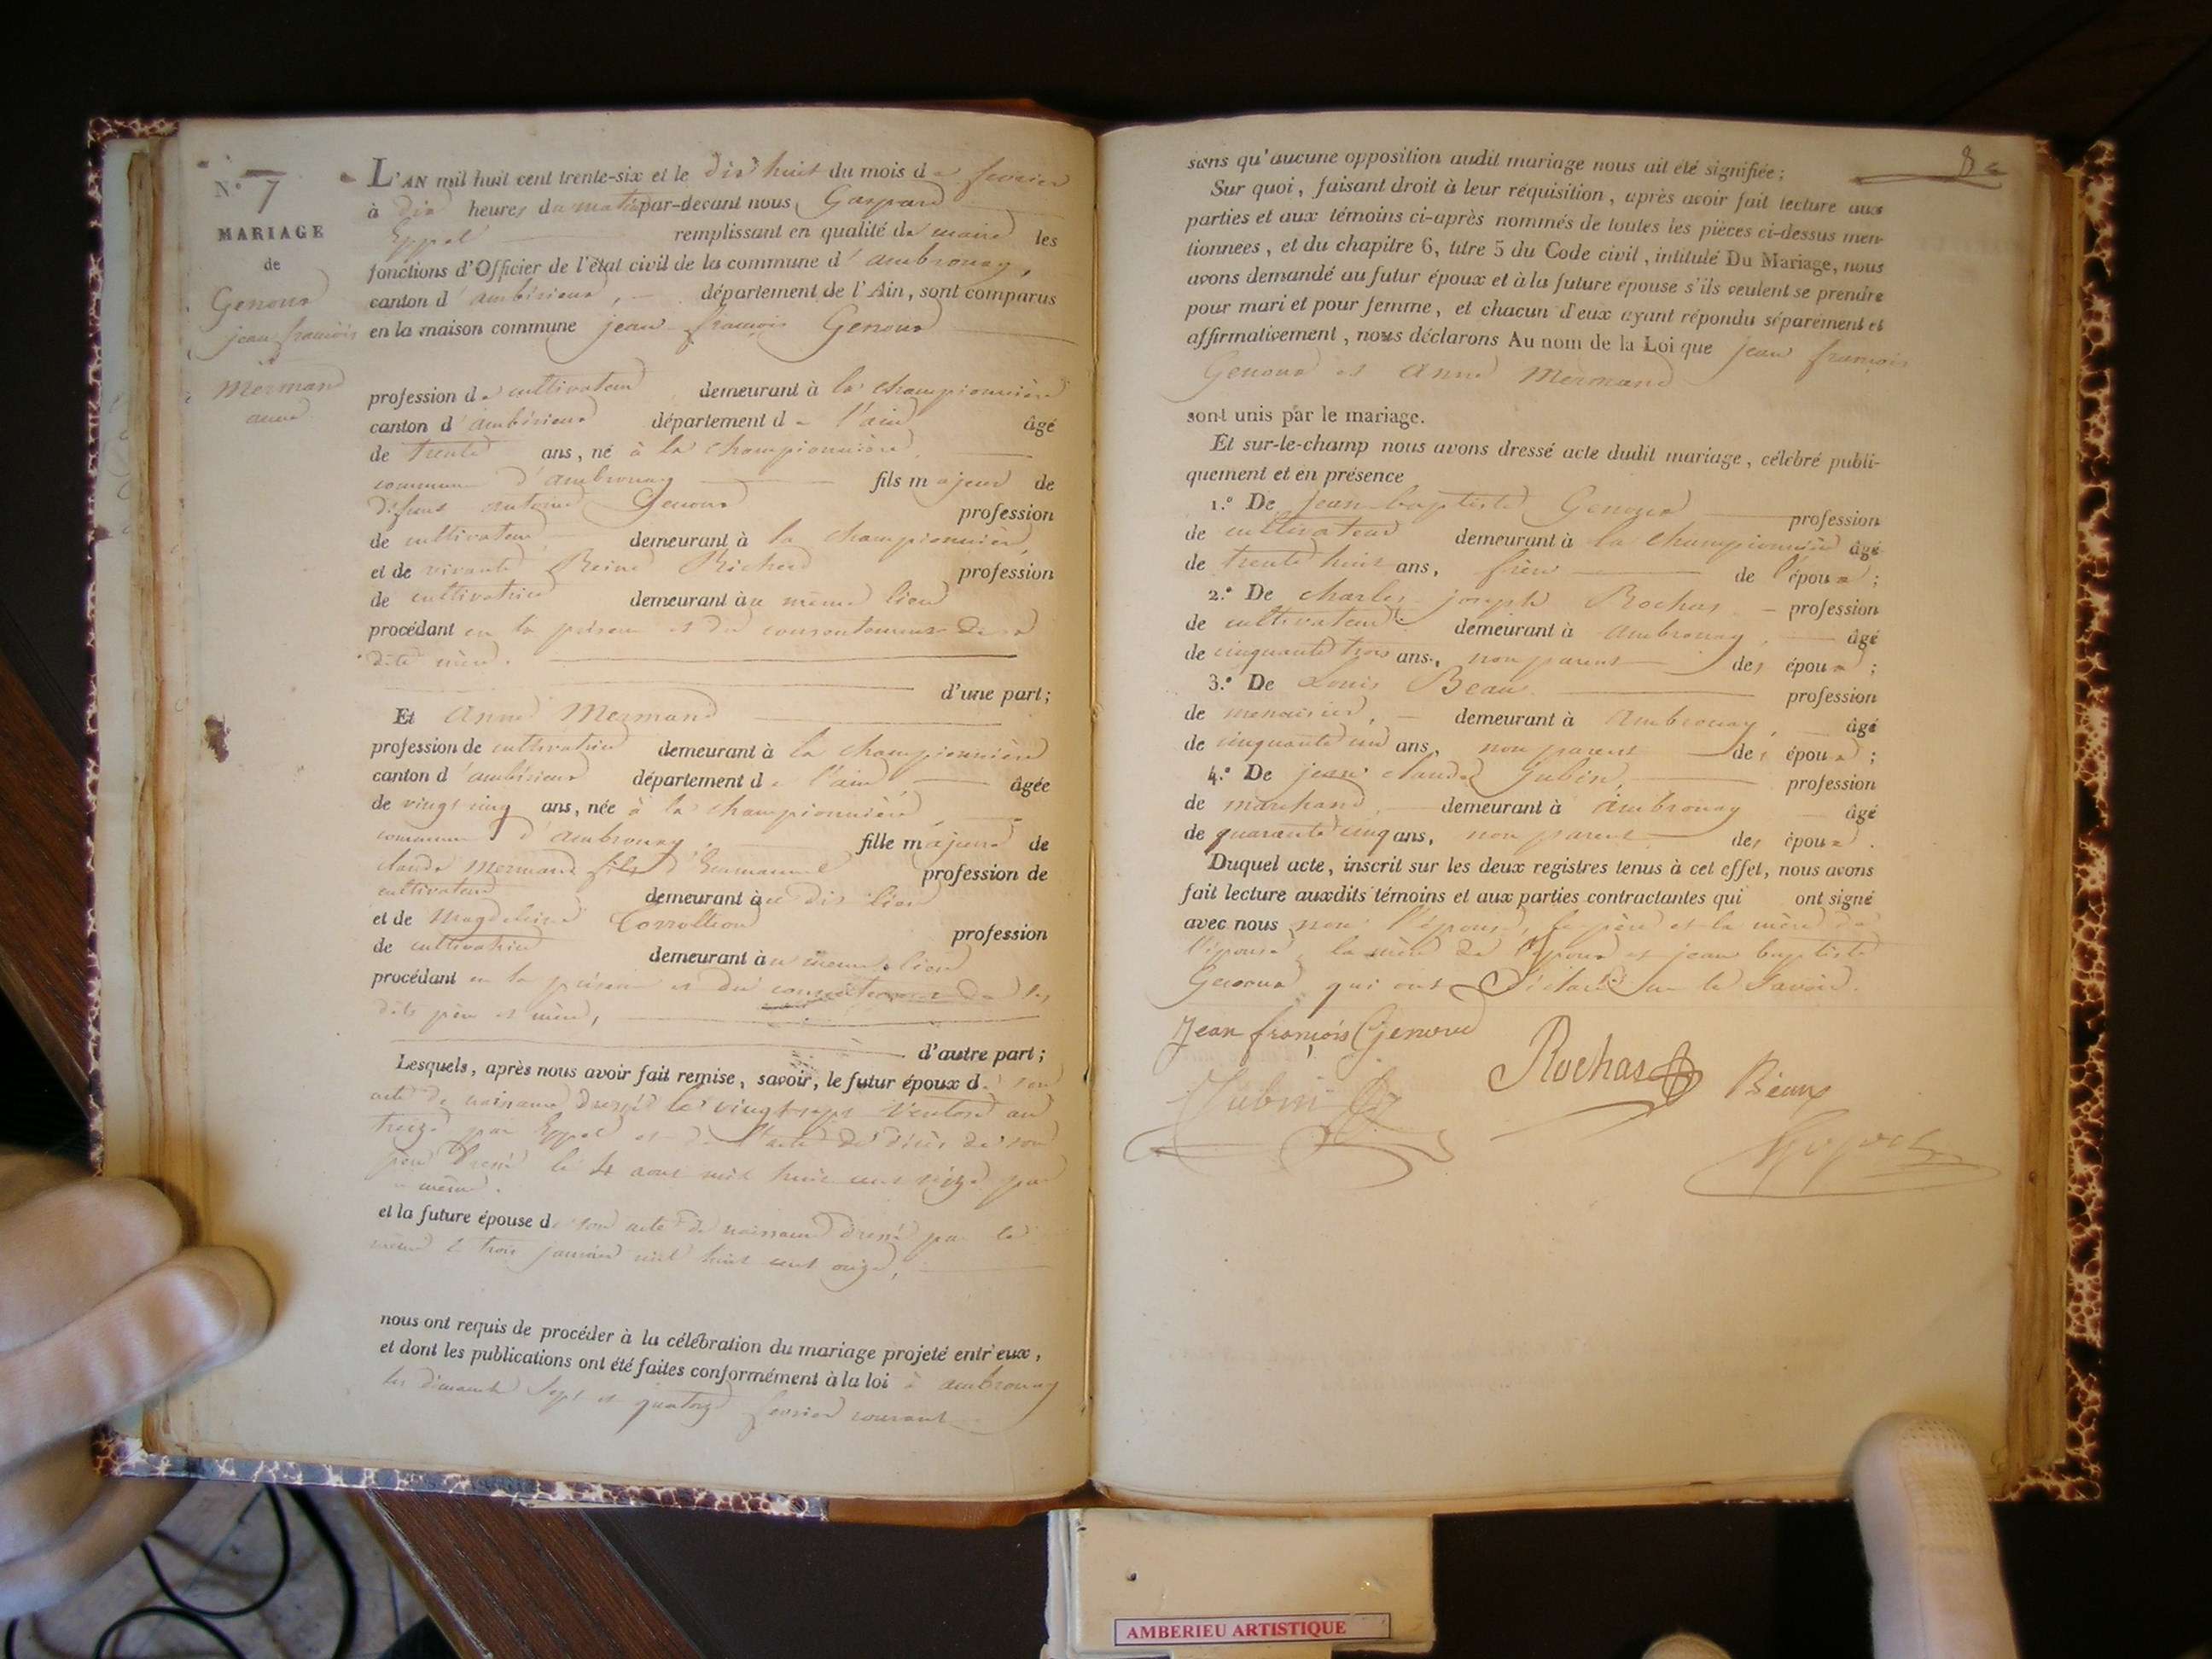 N.° 7
MARIAGE
de
Genoud
jean françois
Mermand
anne
L'AN mil huit cent trente-six et le dix huit du mois de fevrier
à dix heures du matin par-devant nous Gaspard
Eppel remplissant en qualité de maire les
fonctions d'Officier de l'état civil de la commune d'ambronay,
canton d'ambérieux, département de l'Ain, sont comparus
en la maison commune jean françois Genoud
profession de cultivateur demeurant à la championnière
canton d'ambérieux département de l'ain âgé
de trente ans, né à la championnière
commune d'ambronay fils majeur de
défunt antoine Genoud profession
de cultivateur demeurant à la championnière,
et de vivante Reine Richerd profession
de cultivatrice demeurant au même lieu
procédant en la présence et du consentement de sa
dite mère.
d'une part;
Et Anne Mermand
profession de cultivatrice demeurant à la championnière
canton d'ambérieux département de l'ain âgée
de vingt cinq ans, née à la championnière
commune d'ambronay, fille majeure de
claude Mermand fils d'Emmanuel profession de
cultivateur demeurant au dit lieu
et de Magdeleine profession
de cultivatrice demeurant au même lieu
procédant en la présence et du consentement de ses
dits père et mère,
d'autre part;
Lesquels, après nous avoir fait remise, savoir, le futur époux de son
acte de naissance dressé le vingt sept Ventose an
treize par Eppel et de l'acte de décès de son
père dressé le 4 aout mil huit cent seize par
le même.
et la future épouse de son acte de naissance dressé par le
même le trois janvier mil huit cent onze,
nous ont requis de procéder à la célébration du mariage projeté entr'eux,
et dont les publications ont été faites conformément à la loi à ambronay
les dimanche sept et quatorze fevrier courant
8
sans qu'aucune opposition audit mariage nous ait été signifiée;
Sur quoi, faisant droit à leur réquisition, après avoir fait lecture aux
parties et aux témoins ci-après nommés de toutes les pièces ci-dessus men-
tionnees, et du chapitre 6, titre 5 du Code civil, intitulé Du Mariage, nous
avons demandé au futur époux et à la future épouse s'ils veulent se prendre
pour mari et pour femme, et chacun d'eux ayant répondu séparément et
affirmativement, nous déclarons Au nom de la Loi que jean françois
Genoud et Anne Mermand
sont unis par le mariage.
Et sur-le-champ nous avons dressé acte dudit mariage, célébré publi-
quement et en présence
1.° De Jean baptiste Genoud profession
de cultivateur demeurant à la championnière âgé
de trente huit ans, frère de l'époux;
2.° De charles joseph Rochas profession
de cultivateur demeurant à ambronay, âgé
de cinquante trois ans, non parent des époux;
3.° De Louis Beau profession
de menuisier, demeurant à Ambronay, âgé
de cinquante un ans, non parent des époux;
4.° De jean claude Jubin, profession
de marchand demeurant à ambronay âgé
de quarante cinq ans, non parent des époux.
Duquel acte, inscrit sur les deux registres tenus à cet effet, nous avons
fait lecture auxdits témoins et aux parties contractantes qui ont signé
avec nous non l'épouse, le père et la mère de
l'épouse, la mère de l'époux et jean baptiste
Genoud qui ont déclaré ne le savoir.
Jean françois Genoud
Jubin
Rochas
Beau
Eppel
AMBERIEU ARTISTIQUE